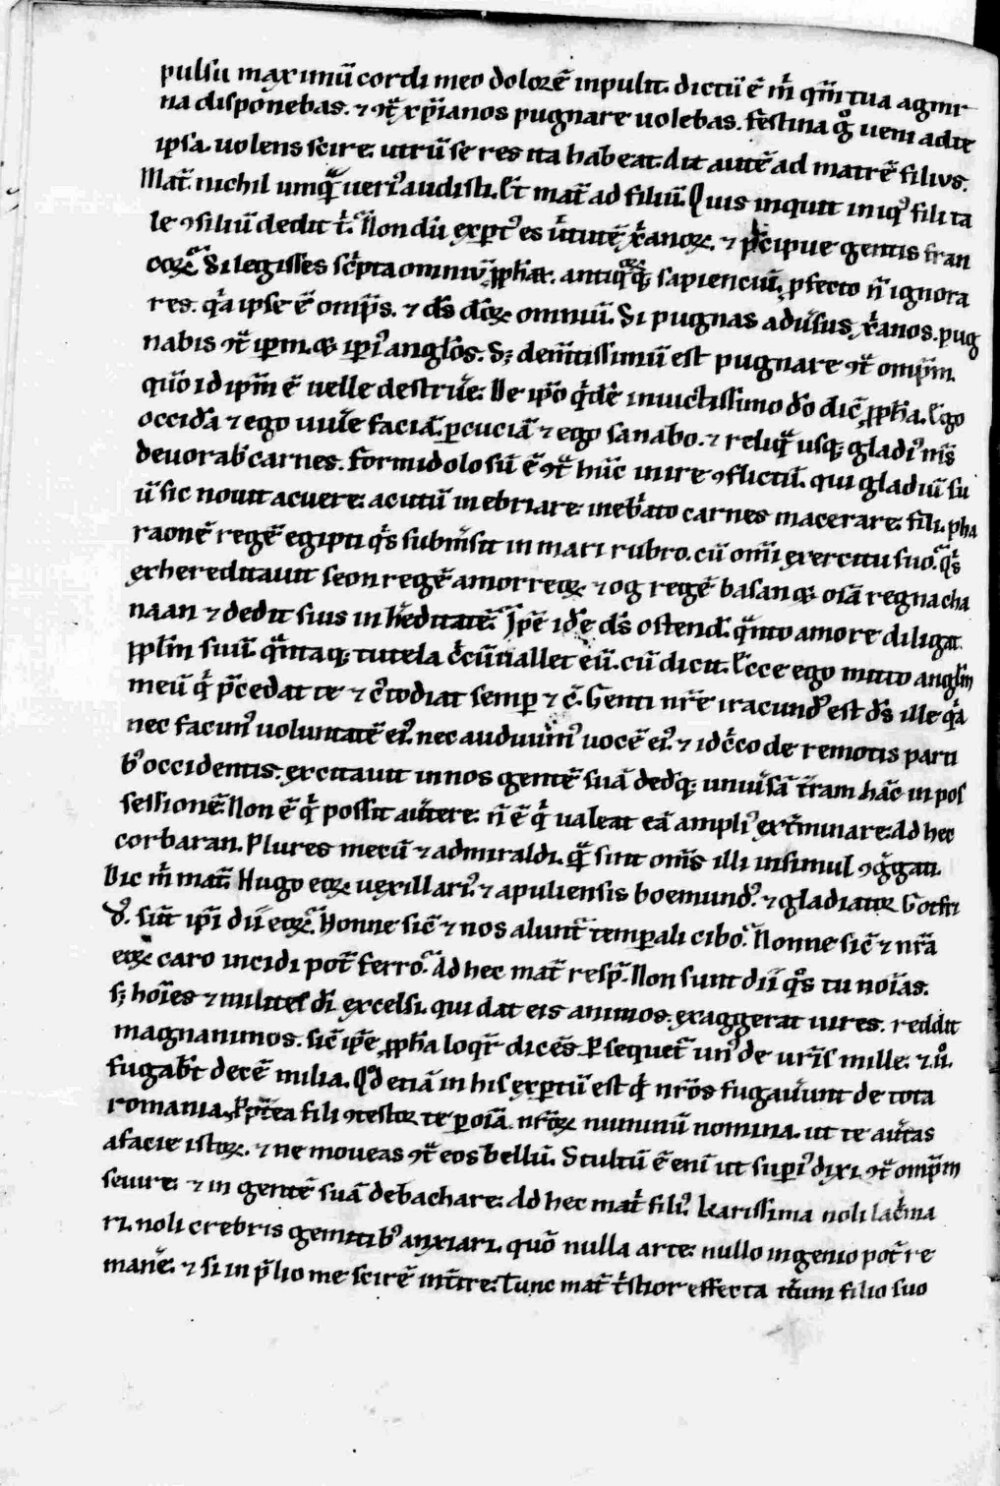 pulsu maximū cordi meo dolorē inpulit. dictū ē m̄ qm̄ tua agmi
na disponebas. ⁊ ꝯt̄ xp̄ianos pugnare uolebas. festina g̊ ueni ad te
ipsa. uolens scire. utrū se res ita habeat. Ait autē ad matrē filius.
Mat̄. nichil umq̄ ueri᾽ audisti. Et̄ mat̄ ad filiū. Quis inquit iniq᾽ fili ta
le ꝯsiliū dedit t̄. Nondū exp̄t᾽ es ũtutē xr̄anoꝝ. ⁊ p̄cipue gentis fran
coꝝ. Si legisses sc̄pta omniū ꝓph̄aꝝ. antiq̄ꝝq;. sapienciū. ꝓfecto n̄ ignora
res. q̄a ipse ē omp̄s. ⁊ dſ̄ dōꝝ omniū. Si pugnas adũsus xr̄anos. pug
nabis ꝯt̄ ip̄m. q; ip̄i᾽ angłos. S; dem̄tissimū est pugnare ꝯt̄ omp̄m.
quō id ip̄m ē uelle destrũe. De ip̄o q̄dē inuictissimo do᷑ dic̄ ꝓph̄a. Ego
occidā ⁊ ego uiũe faciā. ꝑcuciā ⁊ ego sanabo. ⁊ reliq̄ usq; gladi᾽ m̄s
deuorab᷑ carnes. Formidolosū ē ꝯt̄ hūc inire ꝯflictū. qui gladiū su
ū sic nouit acuere. acutū inebriare. ineb᷑ato carnes macerare. fili. pha
raonē regē egipti q̄s subm̃sit in mari rubro. cū om̄i exercitu suo. q̄s
exhereditauit seon regē amorreoꝝ. ⁊ og regē basan q; oīa regna cha
naan ⁊ dedit suis in h᷑editatē. Ip̄e idē dſ̄ ostend̄. q̄nto amore diligat
ppłm suū. q̄ntaq; tutela c̄cūuallet eū. cū dicit. Ecce ego mitto angłm
meū q̄ p̄cedat te ⁊ c᾽todiat semꝑ ⁊ c̄. Genti nr̄e iracund᾽ est dſ̄ ille q̄a
nec facim᾽ uoluntatē ei᾽. nec audiuim᾽ uocē ei᾽. ⁊ idc̄co de remotis parti
b᾽ occidentis. excitauit in nos gentē suā. dedq; uniũsā t̄ram hāc in pos
sessionē. Non ē q̄ possit aũtere. n̄ ē q̄ ualeat eā ampli᾽ ext̄minare. Ad hec
corbaran. Plures mecū ⁊ admiraldi. q̄ sint om̄s illi insimul ꝯg̃gati.
Dic m̄ mat̄. Hugo eoꝝ uexillari᾽. ⁊ apuliensis boemund᾽. ⁊ gladiator Gotfri
d᾽. sūt ip̄i dii᷑ eoꝝ. Nonne sic̄ ⁊ nos alunt᷑ temꝑali cibo. Nonne sic̄ ⁊ nr̄a
eoꝝ caro incidi pot̄ ferro. Ad hec mat̄ resp̄. Non sunt dii q̊s tu noīas.
s; hoīes ⁊ milites di᷑ excelsi. qui dat eis animos. exaggerat uires. reddit
magnanimos. sic̄ ip̄e ꝓph̄a loq̄r dicēs. Ꝑsequet᷑ un᾽ de ur̄is mille. ⁊ .ii.
fugab᷑t decē milia. Qd̄ etiā in his exꝑtū est q̄ nr̄os fugauer̄unt de tota
romania. Ꝓpt̄ea fili ꝯtestor te ꝑ oīa nr̄oꝝ numinū nomina. ut te aũtas
a facie istoꝝ. ⁊ ne moueas ꝯt̄ eos bellū. Stultū ē enī ut suꝑi᾽ dixi. ꝯt̄ omp̄m
seuire. ⁊ in gentē suā debachare. Ad hec mat̄ fili᾽. Karissima noli lac̄ma
ri. noli crebris gemitib᾽ anxiari. quō nulla arte. nullo ingenio pot̄ re
manẽ. ⁊ si in p̄lio me scirē mũire. Tunc mat̄ t̄stior effecta it̄um filio suo